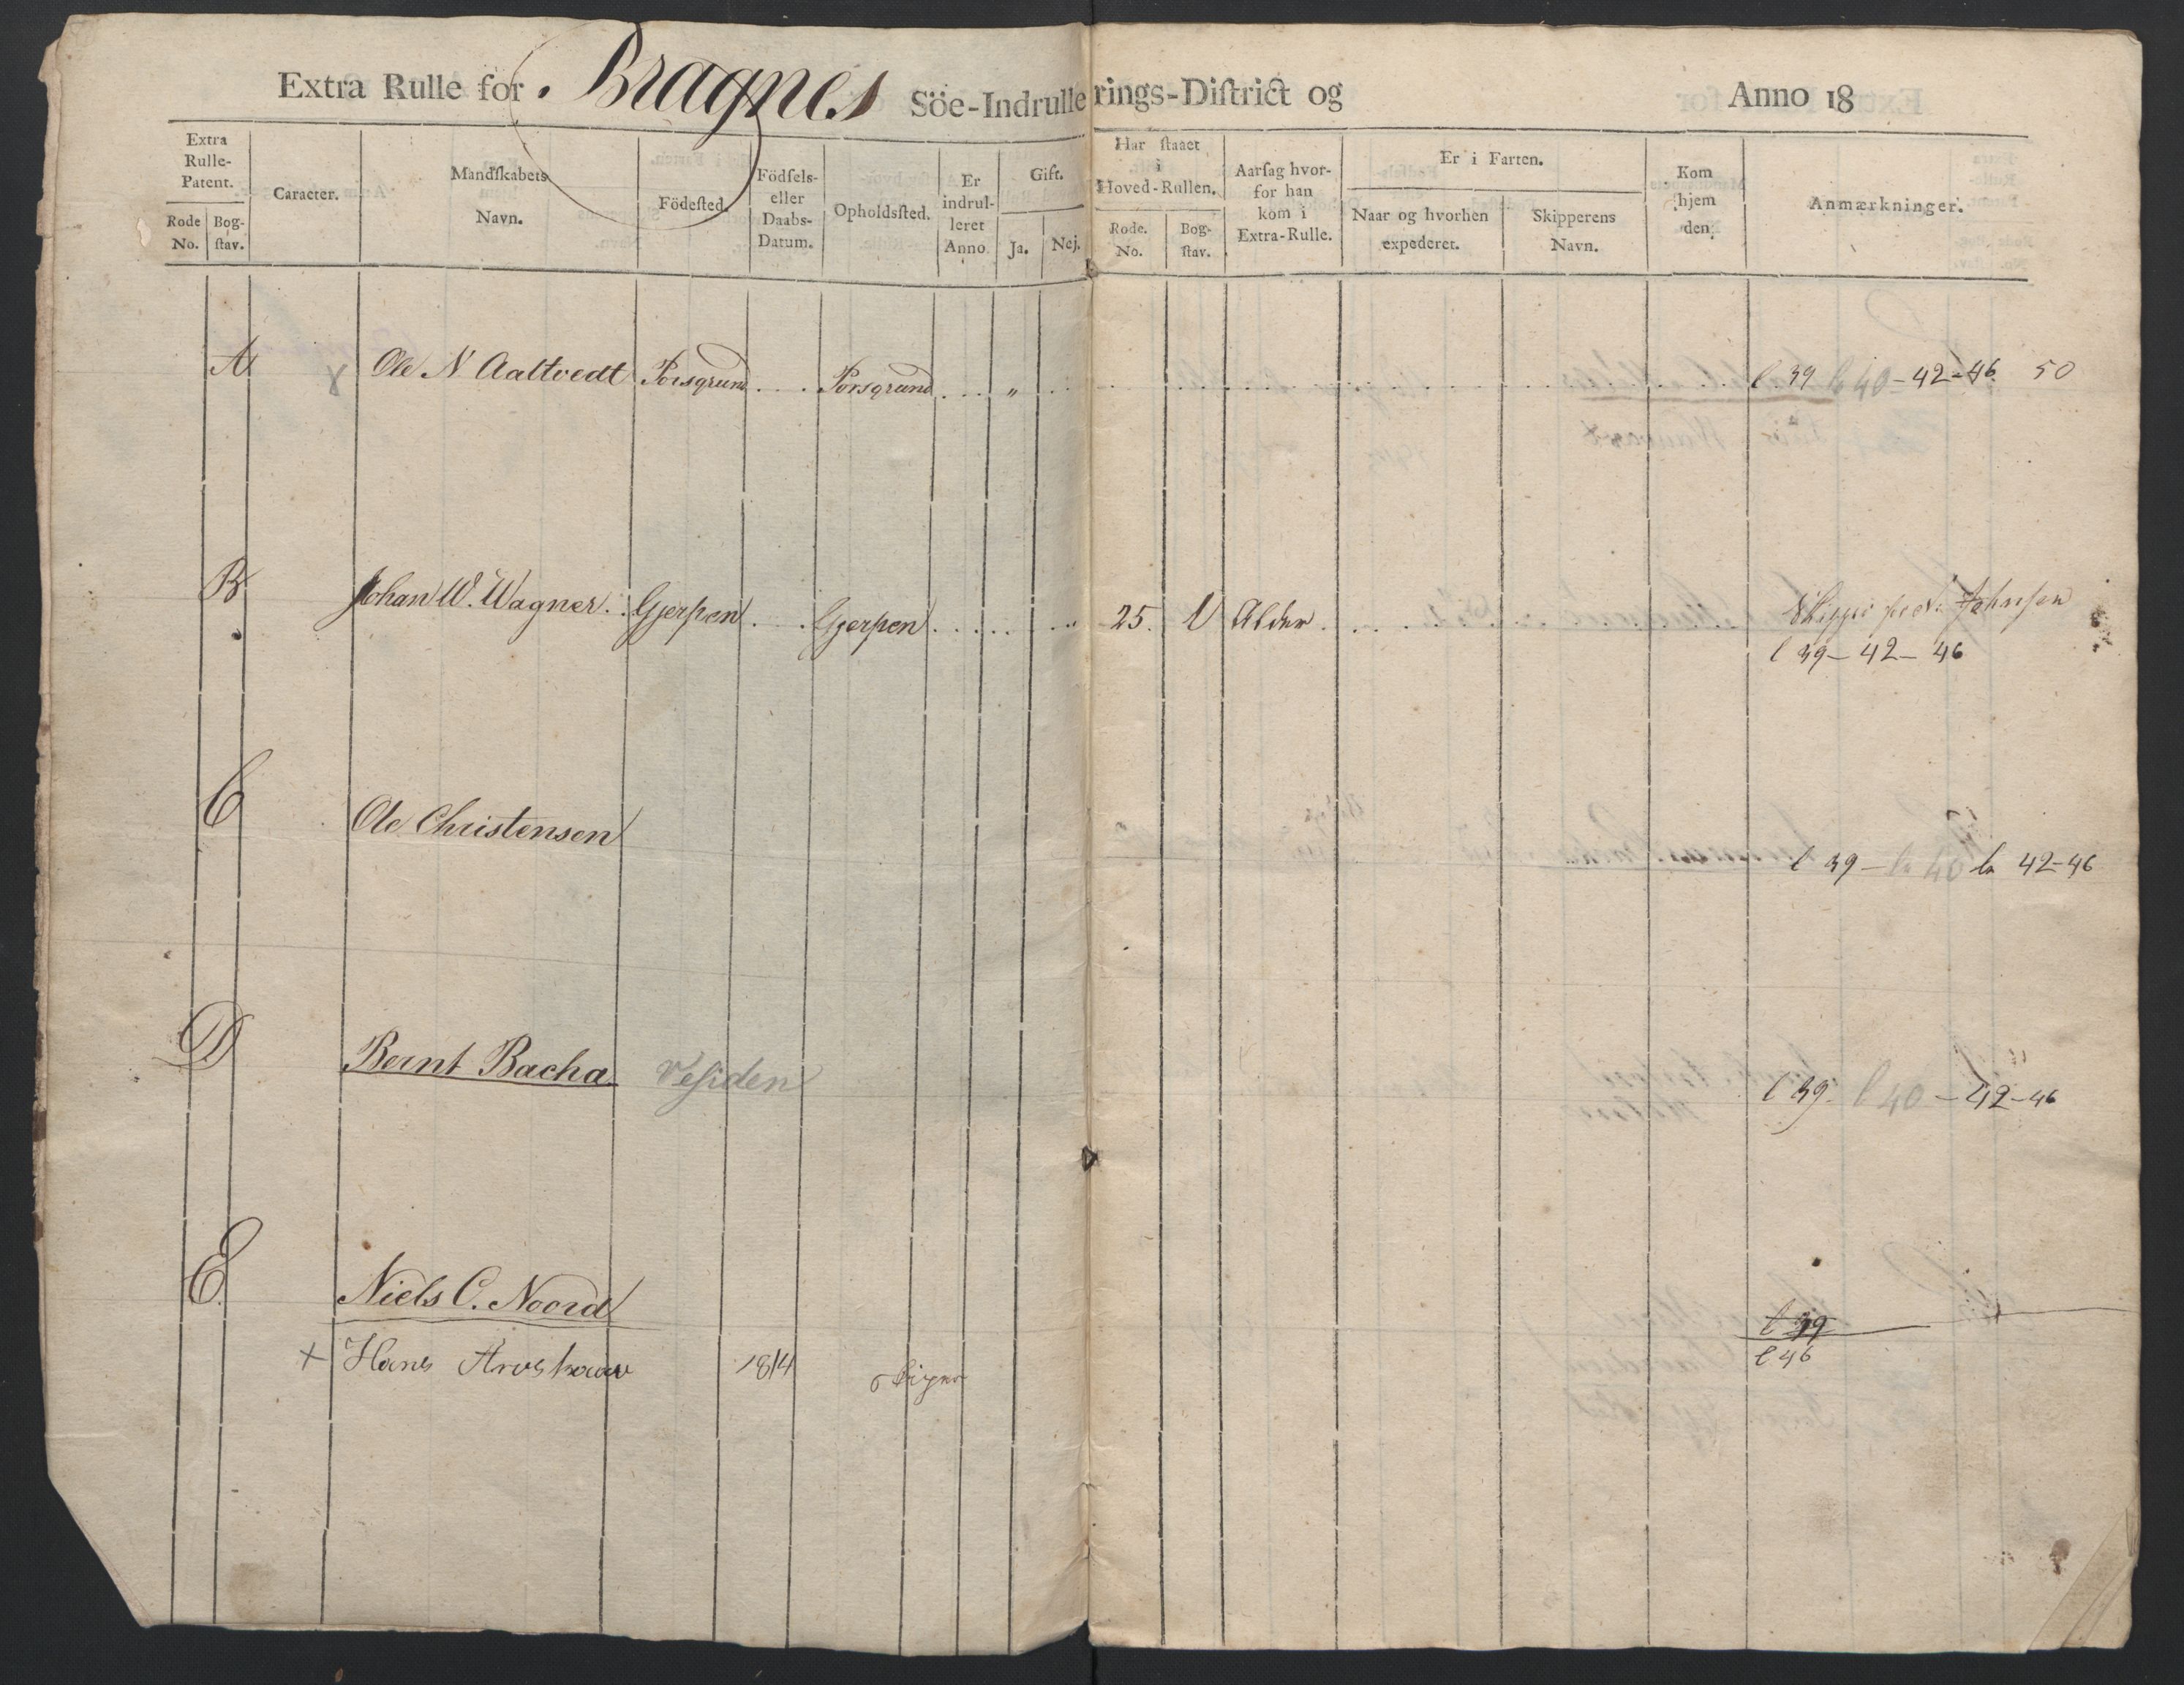 Extra Rulle for Bragnes Söe-Indrullerings-Diſtrict og Anno 18
Extra Rulle-Patent.
Rode No.
Bog-ſtav.
Caracter.
Mandſkabets Navn.
Födeſted.
Födſels- eller Daabs-Datum.
Opholdsſted.
Er indrulleret Anno
Gift.
Ja.
Nej.
Har ſtaaet i Hoved-Rullen.
Rode. No.
Bog-ſtav.
Aarſag hvorfor han kom i Extra-Rulle.
Er i Farten.
Naar og hvorhen expederet.
Skipperens Navn.
Kom hjem den
Anmærkninger.
A Ole N Aaltvedt Porsgrund .... Porsgrund .... „ l 39 l 40 - 42-46. 50
B Johan W. Wagner. Gjerpen . . Gjerpen ...... „ 25. V Alder Johnsen
l 39 - 42 - 46
C Ole Christensen
l 39 - la 40 la 42-46
D Bernt Bacha
l 39. l 40 - 42-46
E. Niels C. Noord
l 39
+ Hans 1814
l 46